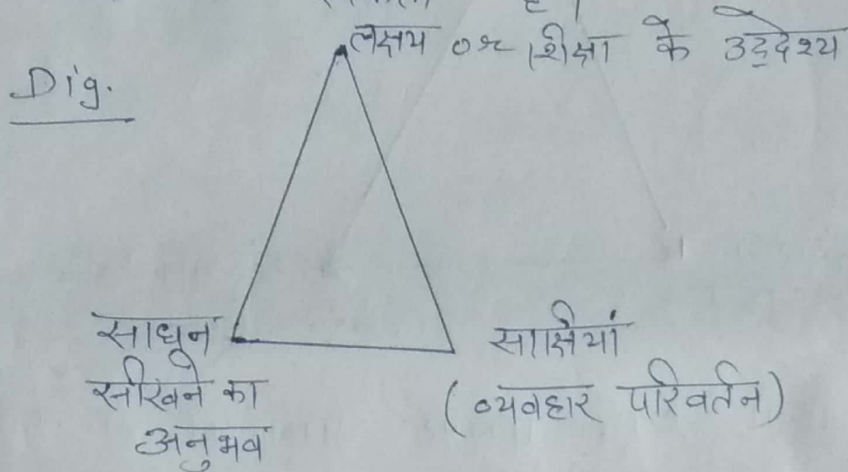 है।
लक्षय or शिक्षा के उद्देश्य
Dig.
साधन
सीखने का
अनुभव
साक्षियां
(व्यवहार परिवर्तन)